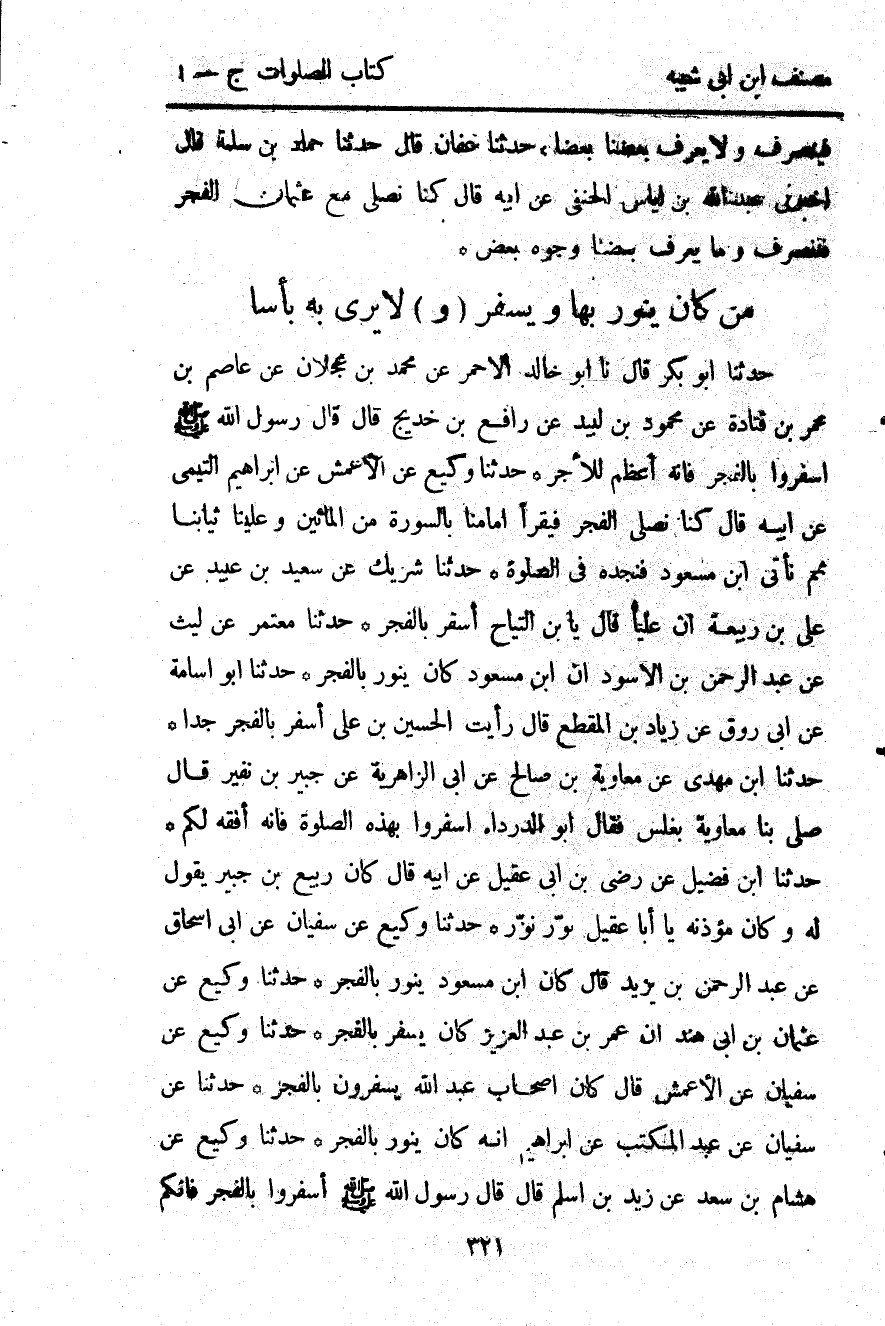 مصنف ابن ابى شيبه كتاب الصلوات ج – ١
فينصرف و لا يعرف بعضنا بعضا، حدثنا عفان قال حدثنا حماد بن سلمة قال
اخبرنى عبدالله بن اياس الحنفى عن ابيه قال كنا نصلى مع عثمان الفجر
فننصرف و ما يعرف بعضنا وجوه بعض ٭
من كان ينور بها و يسفر ( و ) لا يرى به بأسا
حدثنا ابو بكر قال نا ابو خالد الاحمر عن محمد بن عجلان عن عاصم بن
عمر بن قتادة عن محمود بن لبيد عن رافع بن خديج قال قال رسول الله ﷺ
اسفروا بالفجر فانه أعظم للأجر ٭ حدثنا وكيع عن الأعمش عن ابراهيم التيمى
عن ابيه قال كنا نصلى الفجر فيقرأ امامنا بالسورة من المائين و علينا ثيابنا
ثم نأتى ابن مسعود فنجده فى الصلوة ٭ حدثنا شريك عن سعيد بن عبيد عن
على بن ربيعة ان علياً قال يا بن التياح أسفر بالفجر ٭ حدثنا معتمر عن ليث
عن عبد الرحمن بن الاسود ان ابن مسعود كان ينور بالفجر ٭ حدثنا ابو اسامة
عن ابى روق عن زياد بن المقطع قال رأيت الحسين بن على أسفر بالفجر جدا ٭
حدثنا ابن مهدى عن معاوية بن صالح عن ابى الزاهرية عن جبير بن نفير قال
صلى بنا معاوية بغلس فقال ابو الدرداء اسفروا بهذه الصلوة فانه أفقه لكم ٭
حدثنا ابن فضيل عن رضى بن ابى عقيل عن ابيه قال كان ربيع بن جبير يقول
له و كان مؤذنه يا أبا عقيل نوّر نوّر ٭ حدثنا وكيع عن سفيان عن ابى اسحاق
عن عبد الرحمن بن يزيد قال كان ابن مسعود ينور بالفجر ٭ حدثنا وكيع عن
عثمان بن ابى هند ان عمر بن عبد العزيز كان يسفر بالفجر ٭ حدثنا وكيع عن
سفيان عن الأعمش قال كان اصحاب عبد الله يسفرون بالفجر ٭ حدثنا عن
سفيان عن عبيد المكتب عن ابراهيم انه كان ينور بالفجر ٭ حدثنا وكيع عن
هشام بن سعد عن زيد بن اسلم قال قال رسول الله ﷺ أسفروا بالفجر فانكم
٣٢١